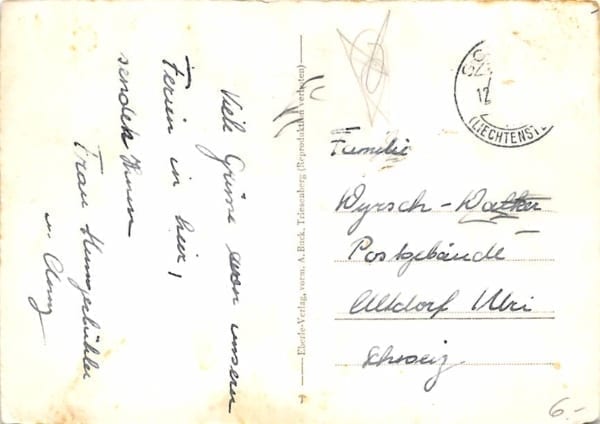 Viele Grüsse von unseren
Ferien in hier,
sendet Ihnen
Frau Hungerbühler
Eberle-Verlag, vorm. A. Buck, Triesenberg (Reproduktion verboten)
12
(LIECHTENSTE
Familie
Wyrsch-Walker
Postgebäude
Altdorf Uri
Schweiz
6.-